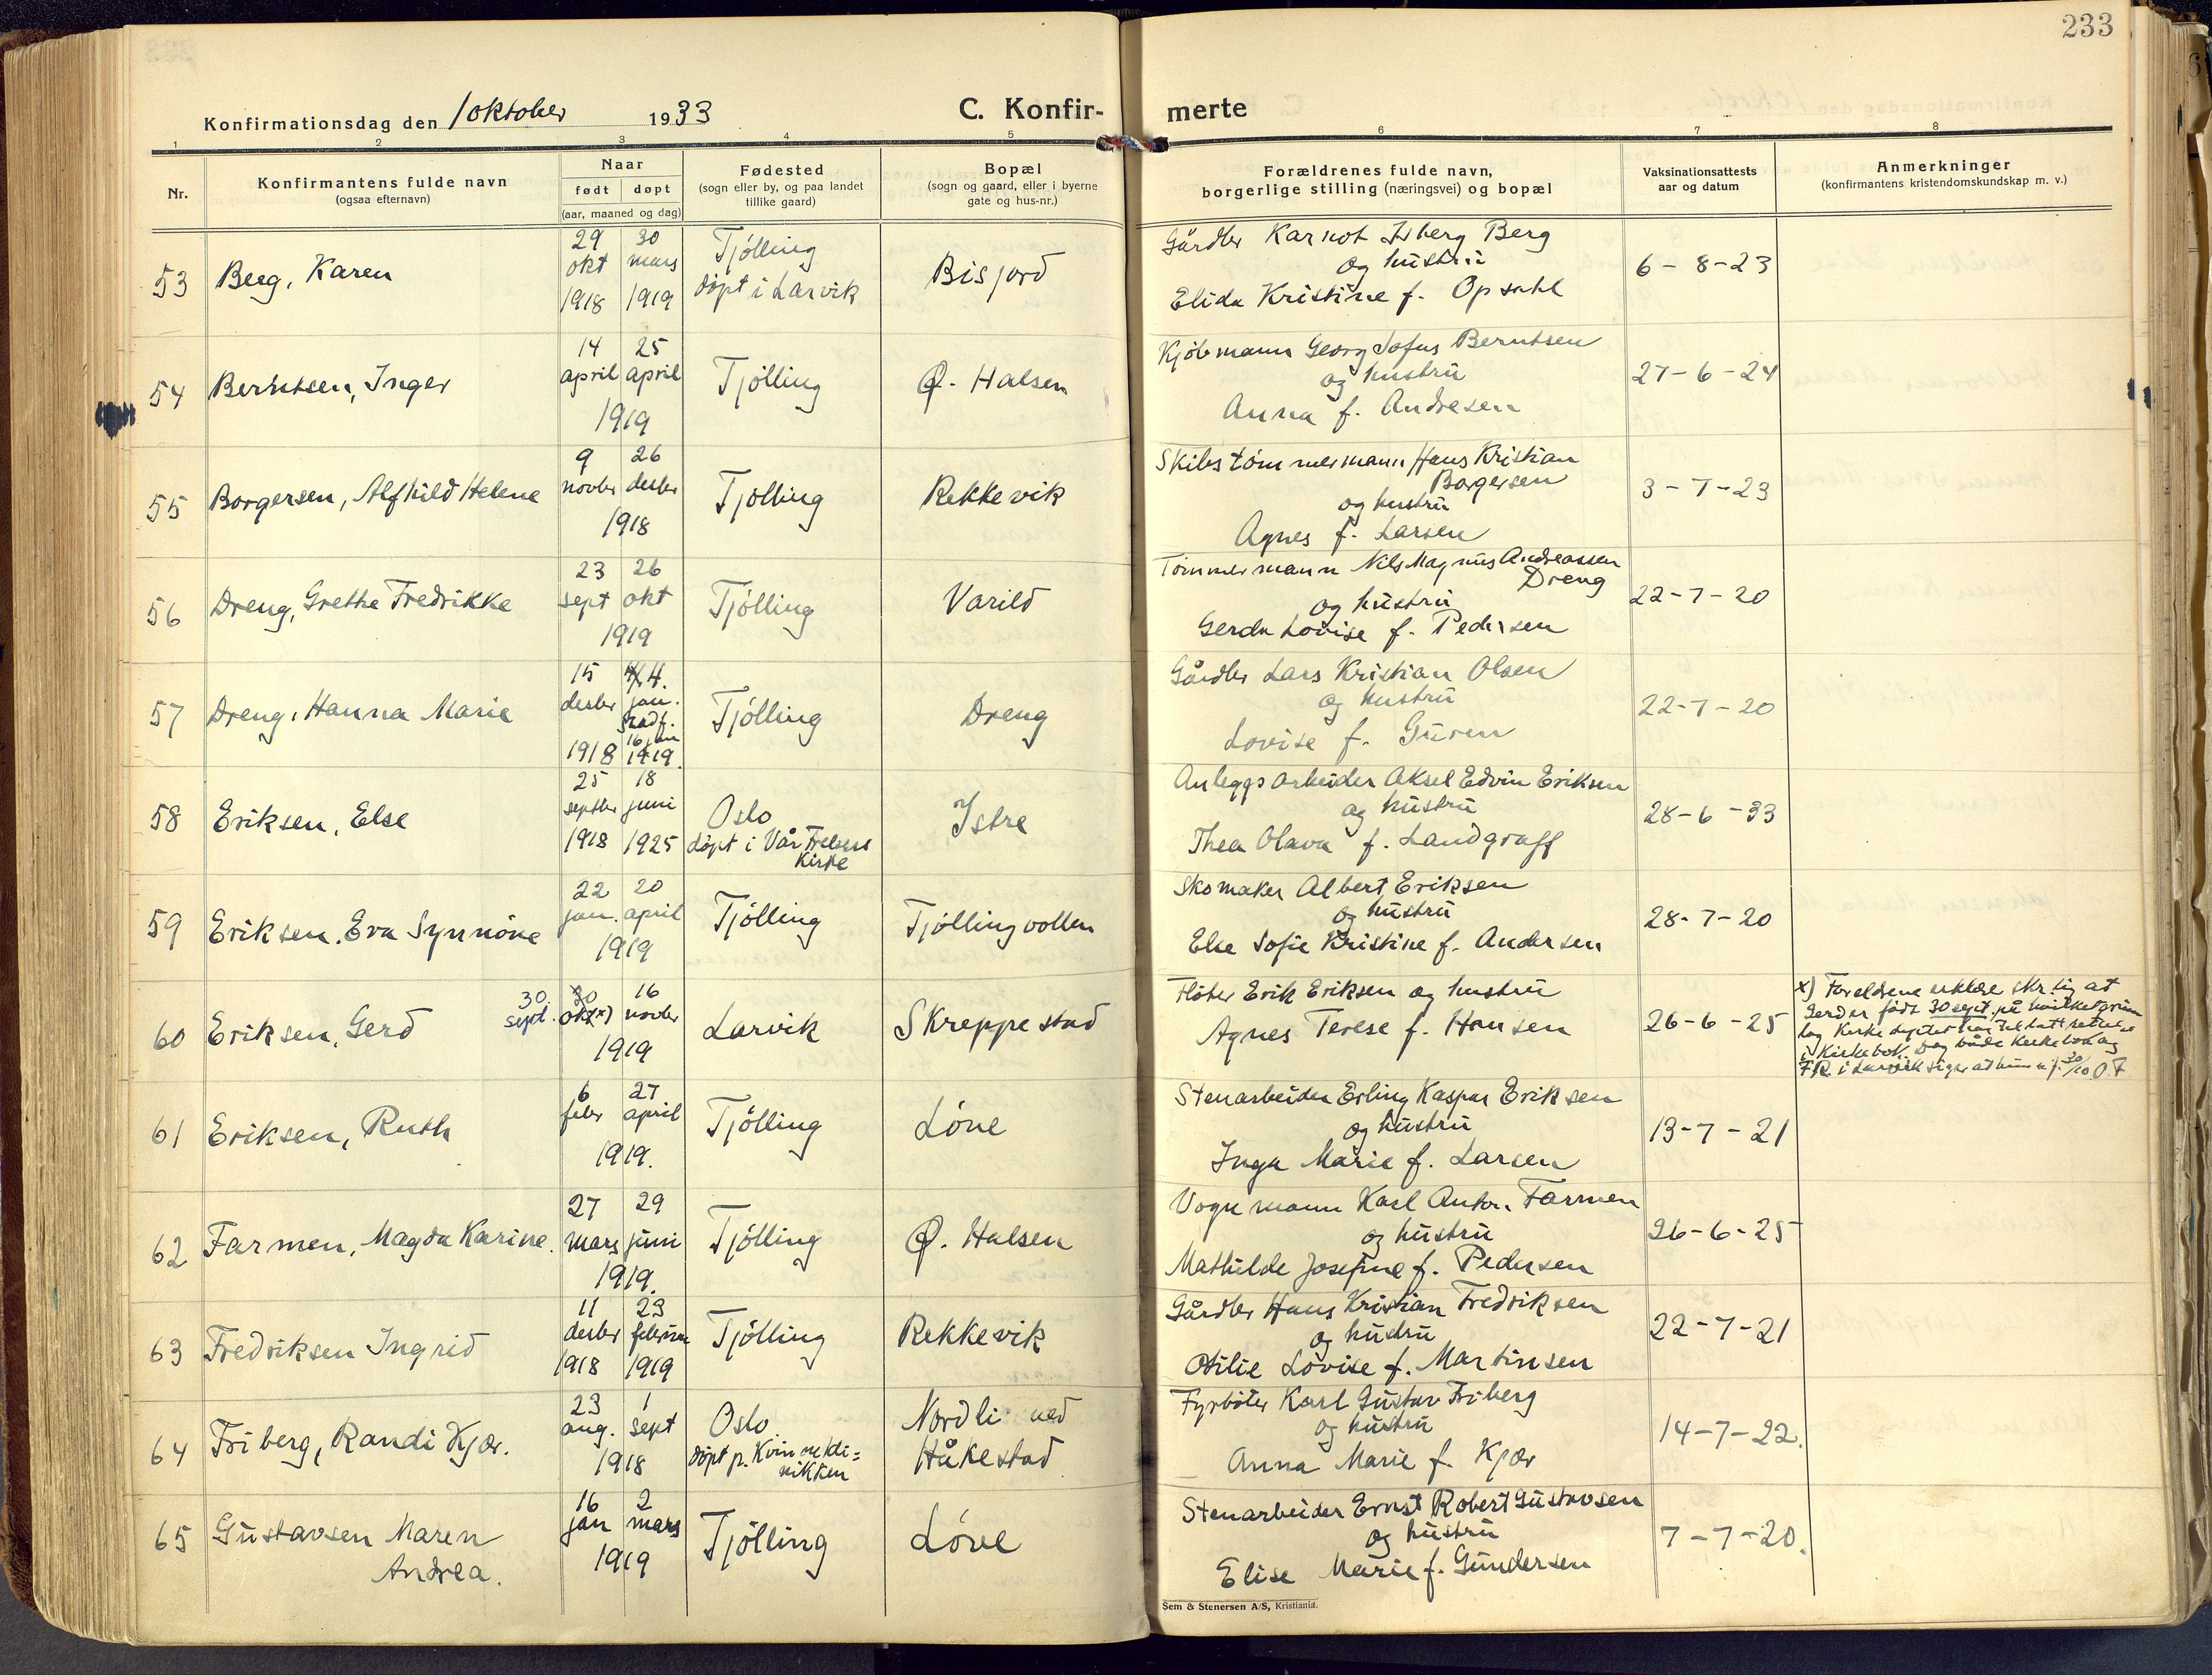 233
Konfirmationsdag den 1 oktober 1933
C. Konfir-
merte
1 2 3 4 5 6 7 8
Nr.
Konfirmantens fulde navn
(ogsaa efternavn)
Naar
født døpt
(aar, maaned og dag)
Fødested
(sogn eller by, og paa landet
tillike gaard)
Bopæl
(sogn og gaard, eller i byerne
gate og hus-nr.)
Forældrenes fulde navn,
borgerlige stilling (næringsvei) og bopæl
Vaksinationsattests
aar og datum
Anmerkninger
(konfirmantens kristendomskundskap m. v.)
53 Berg, Karen
29 30
okt mars
1918 1919
Tjölling
döpt i Larvik
Bisjord
Gårdbr Karnot Berg
og hustru
Elida Kristine f. Opsahl
6-8-23
54 Berntsen, Inger
14 25
april april
1919
Tjölling
Ø. Halsen
Kjöbmann Georg Sofus Berntsen
og hustru
Anna f. Andresen
27-6-24
55 Borgersen, Alfhild Helene
9 26
novbr desbr
1918
Tjölling
Rekkevik
Skibstömmermann Hans Kristian
Borgersen
og hustru
Agnes f. Larsen
3-7-23
56 Dreng, Grethe Fredrikke
23 26
sept okt
1919
Tjölling
Varild
Tömmermann Nils Magnus Andreassen
Dreng
og hustru
Gerda Lovise f. Pedersen
22-7-20
57 Dreng, Hanna Marie
15 H.
desbr jan.
stadf.
16 jan
1918 1919.
Tjölling
Dreng
Gårdbr Lars Kristian Olsen
og hustru
Lovise f. Guren
22-7-20
58 Eriksen, Else
25 18
septbr juni
1918 1925
Oslo
döpt i Vår Frelsers
Kirke
Istre
Anleggsarbeider Aksel Edvin Eriksen
og hustru
Thea Olava f. Landgraff
28-6-33
59 Eriksen, Eva Synnöve
22 20
jan. april
1919
Tjölling
Tjöllingvollen
Skomaker Albert Eriksen
og hustru
Else Sofie Kristine f. Andersen
28-7-20
60 Eriksen, Gerd
30. 30 16
sept. okt x) novbr
1919
Larvik
Skreppestad
Fløter Erik Eriksen og hustru
Agnes Terese f. Hansen
26-6-25
x) Foreldrene erklære skr.lig at
Gerd er født 30 sept, på hvilket grunn
lag Kirkedeptet har tillatt rettelse
i Kirkebok. Dog både kirkebok og
F.R. i Larvik siger at hun er f. 30/10 O.F
61 Eriksen, Ruth
6 27
febr april
1919.
Tjölling
Löve
Stenarbeider Erling Kaspar Eriksen
og hustru
Inga Marie f. Larsen
13-7-21
62 Farmen, Magda Karine.
27 29
mars juni
1919.
Tjölling
Ø. Halsen
Vognmann Karl Anton Farmen
og hustru
Mathilde Josefine f. Pedersen
26-6-25
63 Fredriksen Ingrid
11 23
desbr februar
1918 1919
Tjölling
Rekkevik
Gårdbr Hans Kristian Fredriksen
og hustru
Otilie Lovise f. Martinsen
22-7-21
64 Friberg, Randi Kjær.
23 1
aug. sept
1918
Oslo
döpt p. Kvinnekli=
nikken
Nordli ved
Håkestad
Fyrböter Karl Gustav Friberg
og hustru
Anna Marie f. Kjær
14-7-22.
65 Gustavsen Maren
Andrea.
16 2
jan mars
1919
Tjölling
Löve
Stenarbeider Ernst Robert Gustavsen
og hustru
Elise Marie f. Gundersen
7-7-20.
Sem & Stenersen A/S, Kristiania.